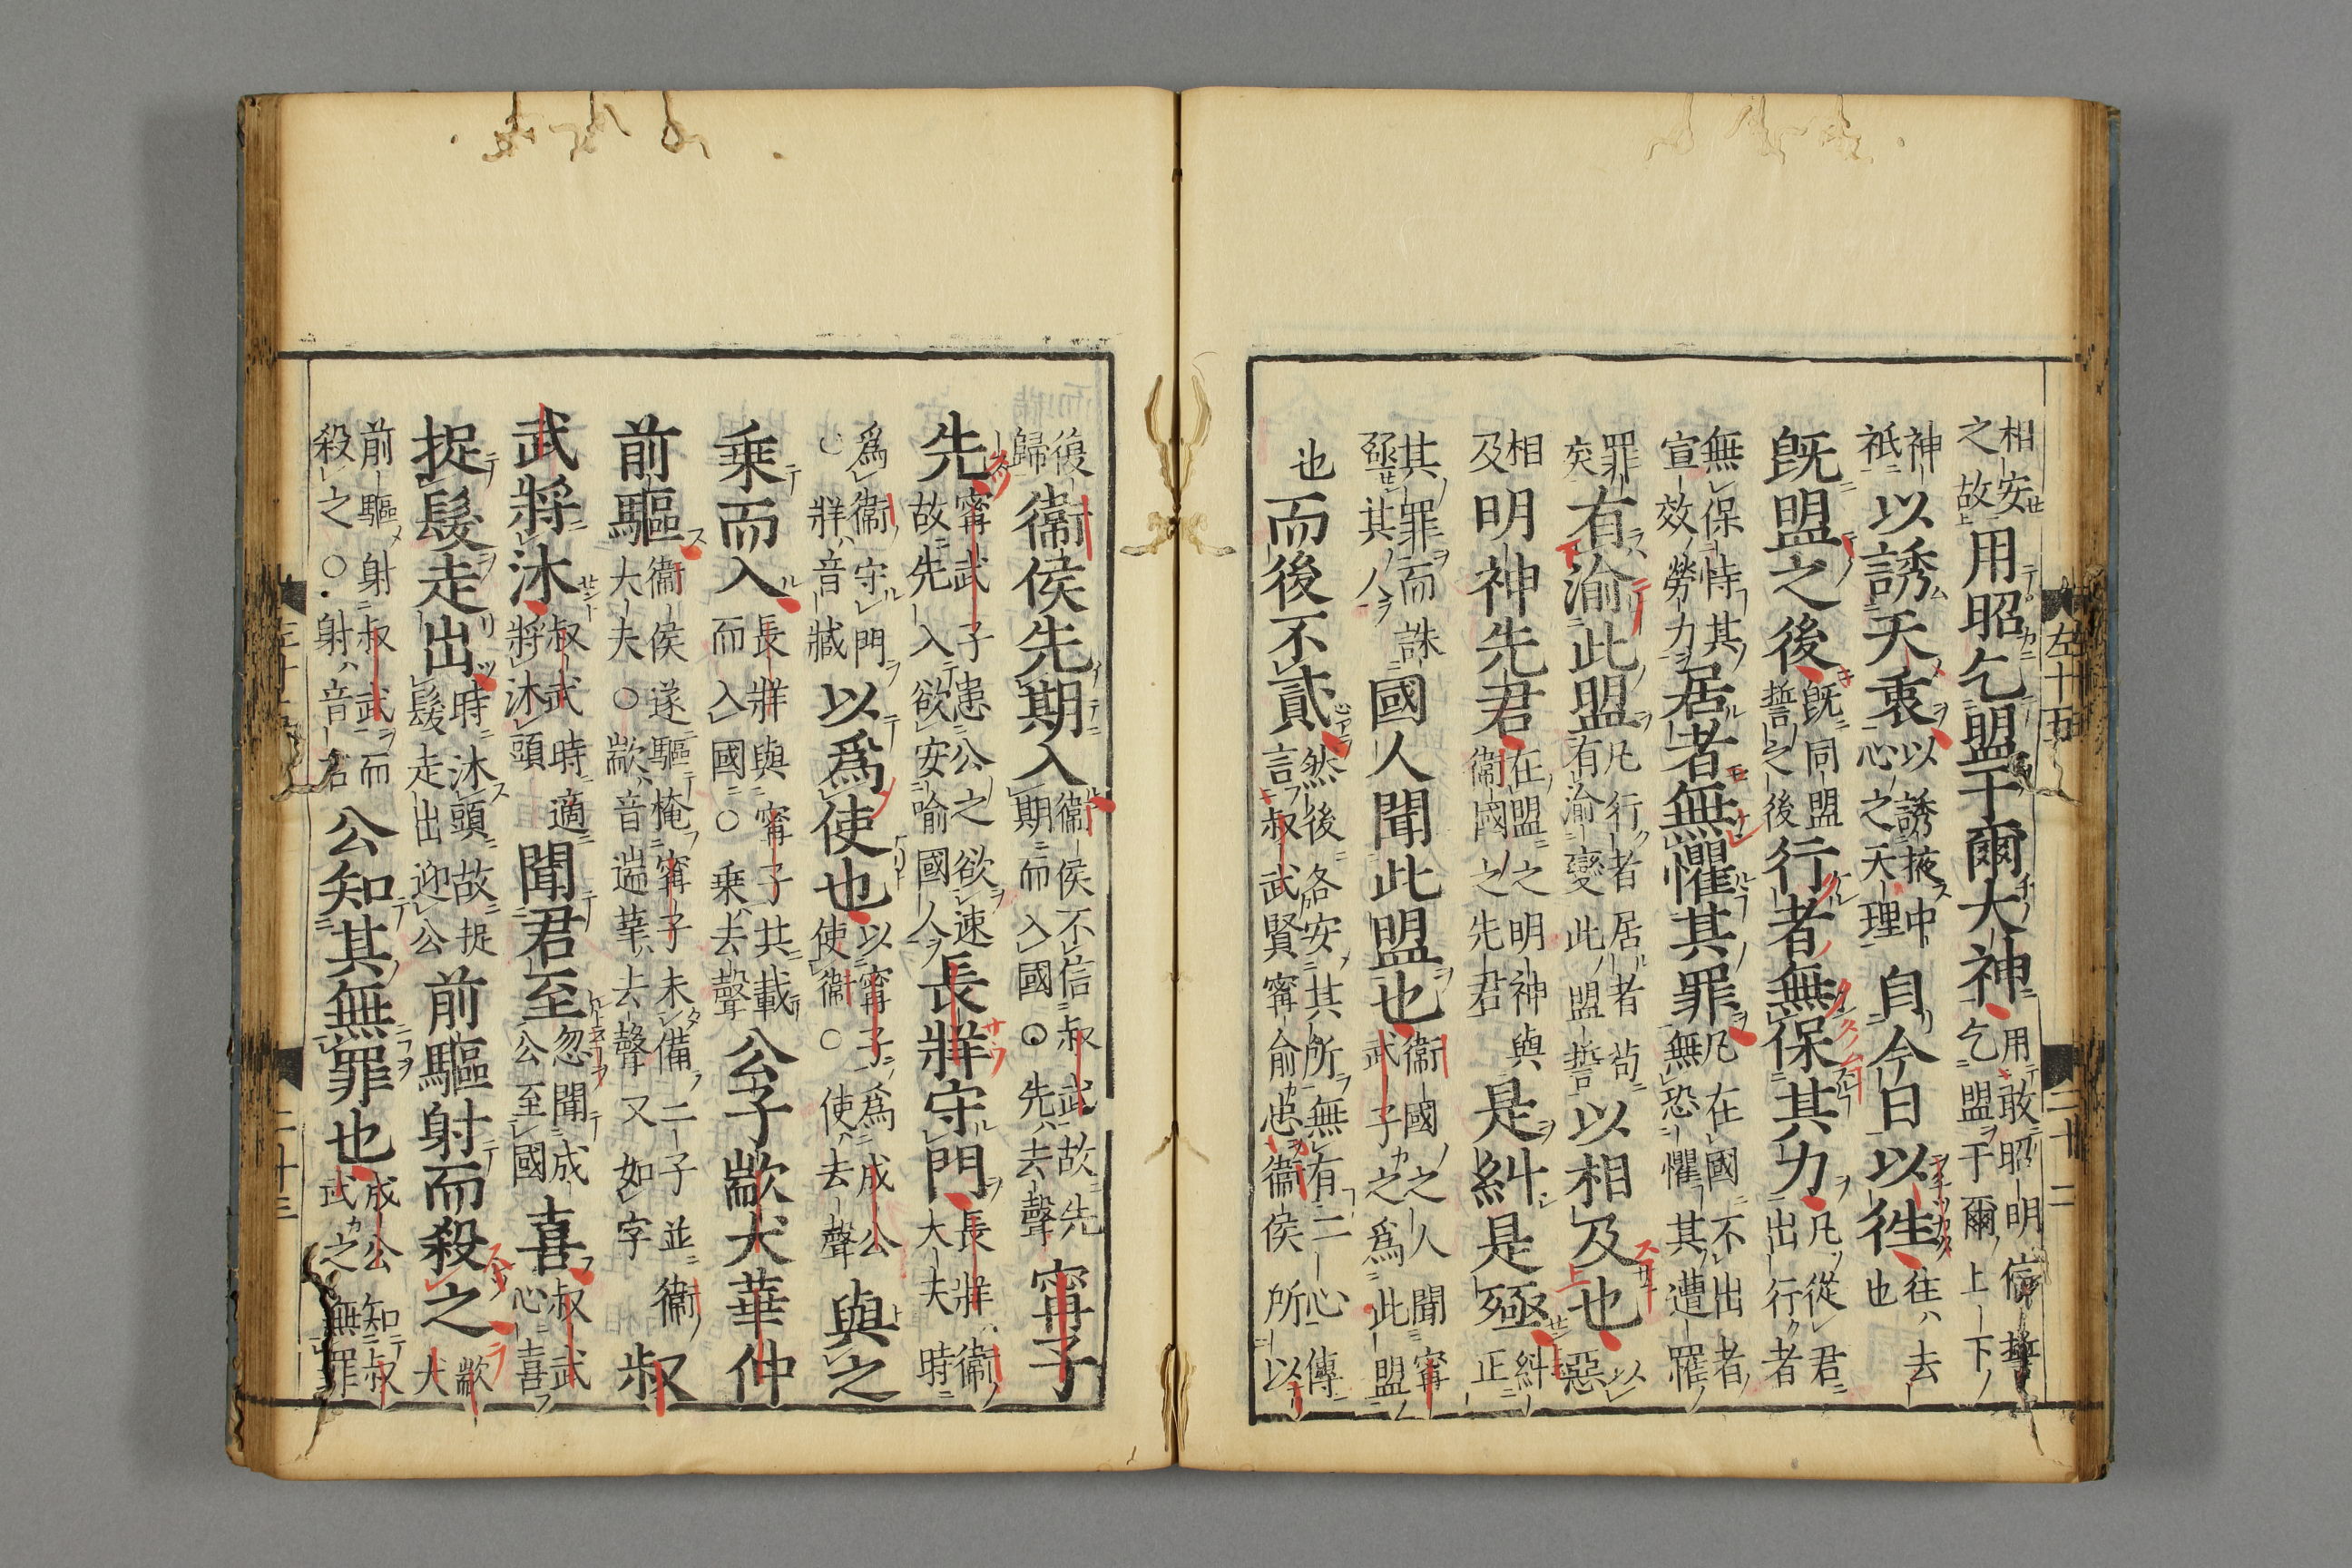 相安
之故用昭乞盟于爾大神用敢昭明信誓
乞盟于爾上下
神
祇以誘天衷以誘掖中
心之天理自今日以往往去
也
既盟之後既同盟
誓之後行者無保其力凡從君
出行者
無保恃其
宣效勞力居者無懼其罪凡在國不出者
無恐懼其遭罹
罪
矣有渝此盟凡行者居者苟
有渝變此盟誓以相及也以
惡
相
及明神先君在盟之明神與
衞國之先君是糾是殛糾
正
其罪而誅
殛其人國人聞此盟也衞國之人聞甯
武子之爲此盟
也而後不貳然後各安其所無有二心傳
言叔武賢甯俞忠衞侯所以
左十五
二十二
後
歸衞侯先期入衞侯不信叔武故先
期而入國○先去聲甯子
先甯武子患公之欲速
故先入欲安喻國人長牂守門長牂衞
大夫時
爲衞守門
○牂音臧以爲使也以甯子爲成公
使衞○使去聲與之
乘而入長牂與甯子共載
而入國○乘去聲公子歂犬華仲
前驅衞侯遂驅掩甯子未備二子並衞
大夫○歂音遄華去聲又如字叔
武將沐叔武時適
將沐頭聞君至忽聞成
公至國喜叔武
心喜
捉髮走出時沐頭故捉
髮走出迎公前驅射而殺之歂
犬
前驅射叔武而
殺之○射音石公知其無罪也成公知叔
武之無罪
二十三